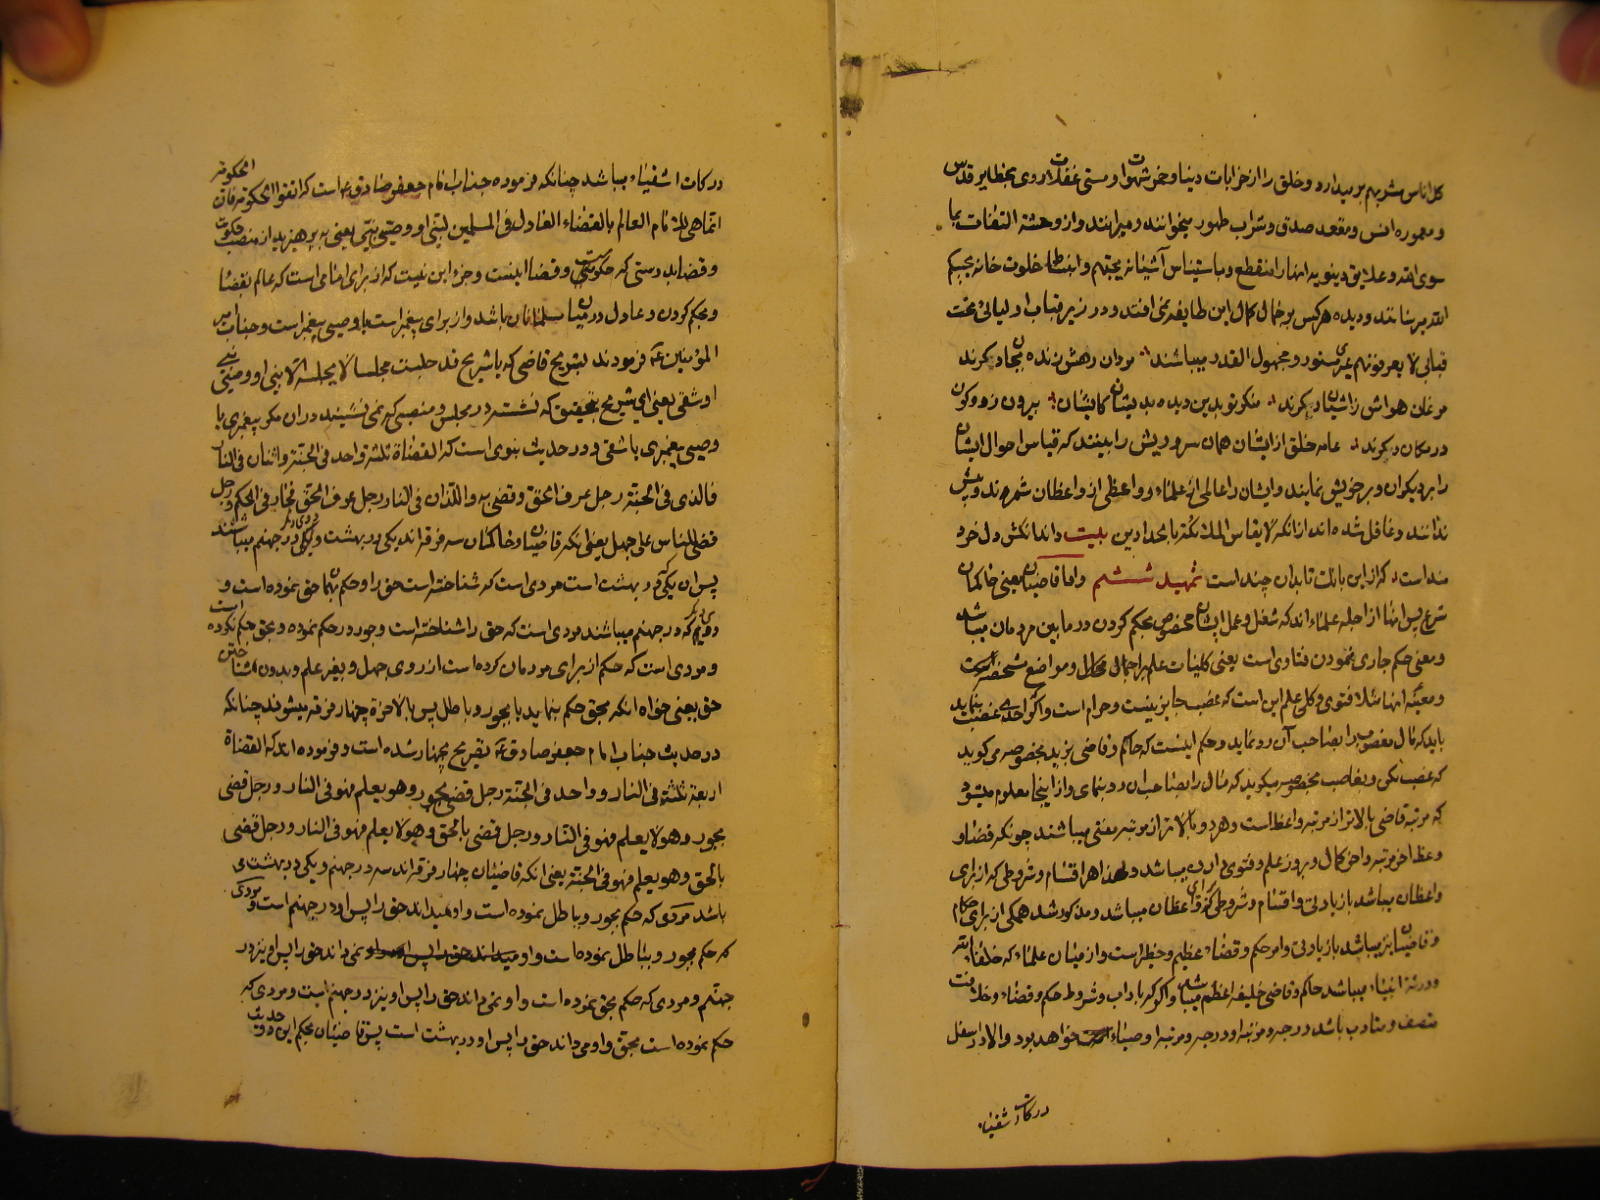 کل اناس مشربهم بر میدارد و خلق را از خرابات دنیا و خمر شهوات و مستی غفلات روی بحظایر قدس
و معموره انس و مقعد صدق و شراب طهور میخوانند و میرانند و از وحشة التفات بما
سوی الله و علایق دینویه انها را منقطع و باستیناس آشیانه یحبهم و انبساط خلوت خانه یحبکم
الله میرسانند و دیده هر کس بر جمال کمال این طایفه نمی افتد و در زیر قباب اولیائی تحت
قبابی لا یعرفونهم غیری مستور و مجهول القدر میباشند مردان رهش زنده بجان دکرند
مرغان هواش ز اشیان دکرند منکر تو بدین دیده بدیشان کایشان بیرون ز دو کون
در مکان دکرند عامه خلق از ایشان همان سر و ریش را بینند که قیاس احوال ایشان
را بر دیکران و بر خویش نمایند و ایشان را عالمی از علماء و واعظی از واعظان شمرند و بیش
ندانند و غافل شده اند از انکه لا یقاس الملائکة بالحدادین بلیت داند انکش دل خرد
منداست که از این بانک تا بدان چند است تمهید ششم و اما قاضیان یعنی حاکمان
شرع پس انها از اجله علماء اند که شغل و عمل ایشان مخصوص بحکم کردن در ما بین مردمان میباشد
و معنی حکم جاری نمودن فتاوی است یعنی کلیات علم بر اجمال محال و مواضع شخصیه است
و معینه انها مثلا فتوی و کلی علم این است که غصب جایز نیست و حرام است و اکر احدی غصب نماید
باید که مال مغصوب را بصاحب آن رد نماید و حکم اینست که حاکم و قاضی بزید بخصوصه می کوید
که غصب نکن و بغاصب بخصوصه میکوید که مال را بصاحب ان رد بنمای و از اینجا معلوم میشود
که مرتبه قاضی بالاتر از مرتبه واعظ است و هر دو بالاتر از مرتبه مفتی میباشند چونکه قضا و
وعظ اخر مرتبه و اخر کمال و بروز علم و فتوی دادن میباشد و لهذا هر اقسام و شروطی که از برای
واعظان میباشد با زیادتی و اقسام و شروطی که از برای واعظان میباشد و مذکور شد همکی از برای حکام
و قاضیان نیز میباشد با زیادتی و امر حکم و قضاء عظیم و خطیر است و از میان علماء که خلفاء الله
و ورثه انبیاء میباشد حاکم و قاضی خلیفه اعظم میباشد و اکر که باداب و شروط حکم و قضاء و خلافت
متصف و متادب باشد درجه و مرتبه او درجه و مرتبه اوصیاء خواهد بود و الا در اسفل
درکات اشقیاء
درکات اشقیاء میباشد چنانکه فرموده جناب امام جعفر صادق ع است که اتقوا الحکومة فان الحکومة
انما هی للامام العالم بالقضاء العادل فی المسلمین لنبی او وصی نبی یعنی بپرهیزید از منصب حکومت
و قضا بدرستی که حکومت و قضا اینست و جز این نیست که از برای امامی است که عالم بقضا
و بحکم کردن و عادل در میان مسلمانان باشد و از برای پیغمبر است یا وصی پیغمبر است و جناب امیر
المؤمنین ع فرمودند بشریح قاضی که یا شریح قد جلست مجلسا لا یجلسه الا نبی او وصی نبی
او شقی یعنی ای شریح بتحقیق که نشسته در مجلس و منصبی که نمی نشیند در ان مکر پیغمبری یا
وصی پیغمبری یا شقی و در حدیث نبوی است که القضاة ثلثة واحد فی الجنة و اثنان فی النار
فالذی فی الجنة رجل عرف الحق و قضی به و اللذان فی النار رجل عرف الحق فجار فی الحکم و رجل
قضی للناس علی جهل یعنی انکه قاضیان و حاکمان سه فرقه اند یکی در بهشت و دوی دیگر در جهنم میباشند
پس ان یکی که در بهشت است مردی است که شناخته است حق را و حکم بهمان حق نموده است و
دوی دیکر که در جهنم میباشند مردی است که حق را شناخته است و جور در حکم نموده و بحق حکم نکرده است
و مردی است که حکم از برای مردمان کرده است از روی جهل و بغیر علم و بدون شناختن
حق یعنی خواه انکه بحق حکم بنماید یا بجور و باطل پس بالاخرة چهار فرقه میشوند چنانکه
در حدیث جناب امام جعفر صادق ع تصریح بچهار شده است و فرموده اند که القضاة
اربعة ثلثة فی النار و واحد فی الجنة رجل قضی بجور و هو یعلم فهو فی النار و رجل قضی
بجور و هو لا یعلم فهو فی النار و رجل قضی بالحق و هو لا یعلم فهو فی النار و رجل قضی
بالحق و هو یعلم فهو فی الجنة یعنی انکه قاضیان چهار فرقه اند سه در جهنم و یکی در بهشت می
باشد مردی که حکم بجور و باطل نموده است و او میداند حق را پس او در جهنم است و مردی
که حکم بجور و بباطل نموده است و او نمی داند حق را پس او نیز در
جهنم و مردی که حکم بحق نموده است و او نمی داند حق را پس او نیز در جهنم است و مردی که
حکم نموده است بحق و او می داند حق را پس او در بهشت است پس قاضیان بحکم این حدیث